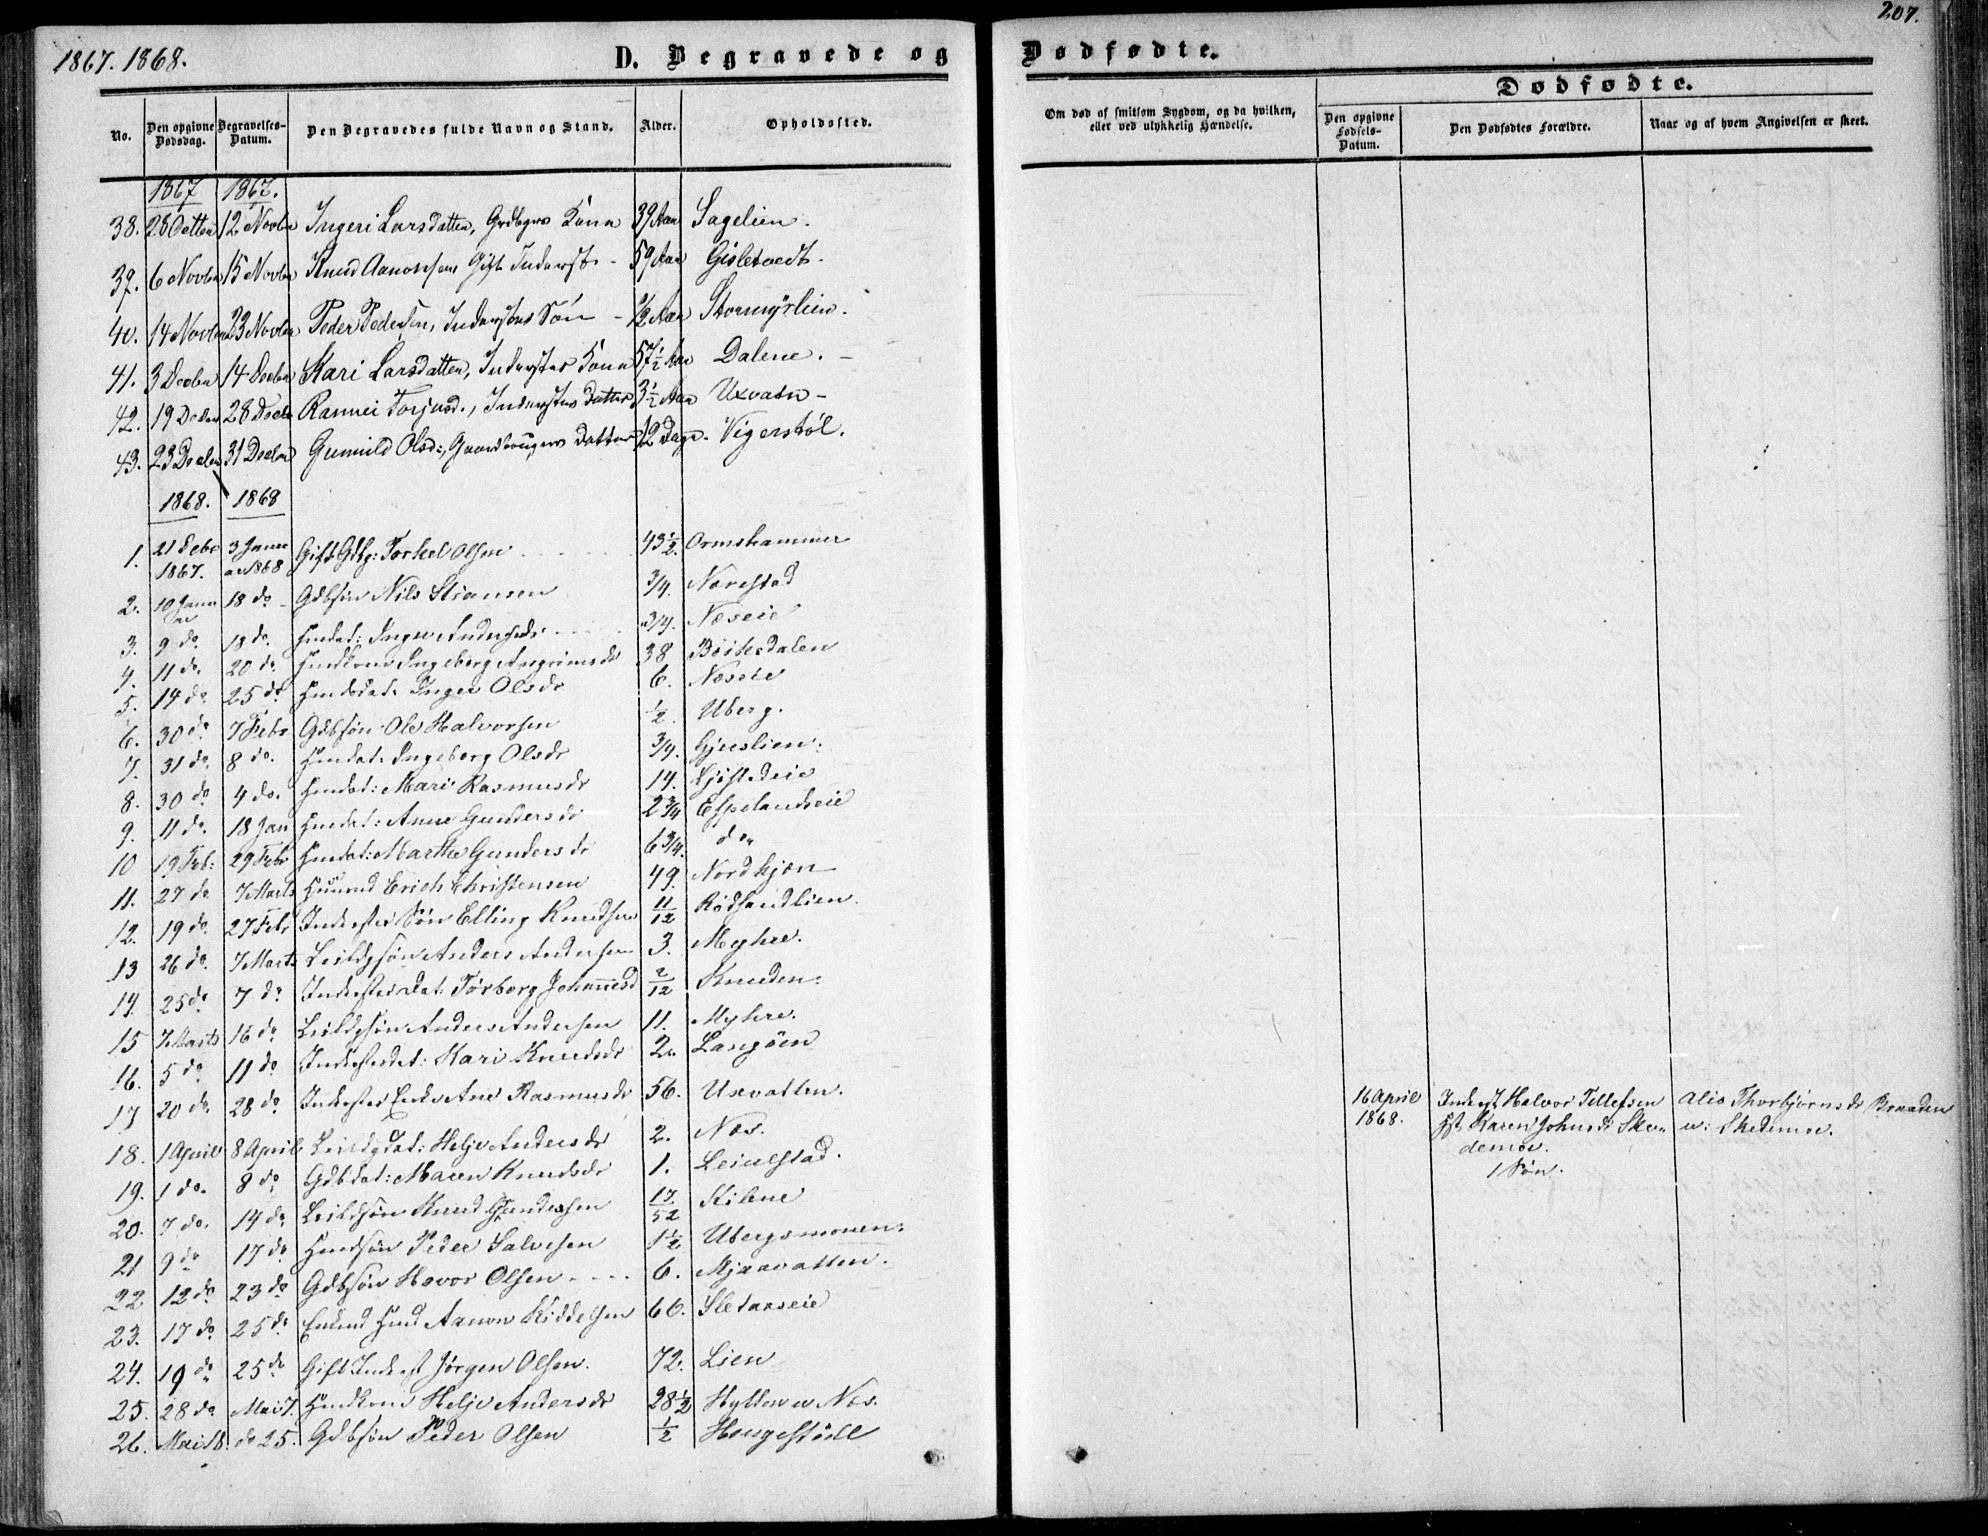 1867. 1868.
D. Begravede og
Dødfødte.
207.
No.
Den opgivne Dødsdag.
Begravelses-Datum.
Den Begravedes fulde Navn og Stand.
Alder.
Opholdssted.
Om død af smitsom Sygdom, og da hvilken, eller ved ulykkelig Hændelse.
Dødfødte.
Den opgivne Fødsels-Datum.
Den Dødfødtes Forældre.
Naar og af hvem Angivelsen er skeet.
1867 1867.
38. 28 Octbr 12 Novbr Ingeri Larsdatter, Grdbrgrs Kone 39 Aar Sagelien.
39. 6 Novbr 15 Novbr Knud Aanonsen Gift Inderst - 59 Aar Gisletvedt.
40. 14 Novbr 23 Novbr Peder Pedersen, Inderstes Søn - 1/2 Aar Stormyrlien.
41. 3 Decbr 14 Decbr Kari Larsdatter, Inderstes Kone 57 1/2 Aar Dalene. -
42. 19 Decbr 28 Decbr Rannei Torjusd., Inderstes Datter 3 1/2 Aar Uxvatn -
43. 23 Decbr 31 Decbr Gunnild Olsd:, Gaardbrugers Datter 12 Dage. Vigerstøl.
1868. 1868
1. 21 Debr 1867. 3 Janu ar 1868 Gift Gdbg: Torkel Olsen 43 1/2. Ormshammer
2. 10 Janu ar 18 do - Gdbsøn Nils 3/4. Navestad
3. 9 do 18 do. Husdat: Inger Andersdr 3/4. Næseie
4. 11 do. 20 do Husmkone Ingeborg 38 Bøilsdalen
5. 14 do 25 do Husdat. Inger Olsdr 6. Næseie
6. 30 do 7 Febr Gdbsøn Ole Halvorsen 1/2. Uberg.
7. 31 do. 8 do. Husdat. Ingeborg Olsdr 3/4. Gjuslien.
8. 30 do 4 do. Husdat: Mari Rasmusdr 14.
9. 11 do. 18 Jan Husdat: Anne Gundersdr 2 3/4 Espelandseie
10 19 Feb: 29 Febr Husdat: Marthe Gundersdr 6 3/4. do
11. 27 do 7 Marts Husmd Erich Christensen 49. Nordkjøn
12. 19 do. 27 Febr Inderstes Søn Elling Knudsen 11/12 Rødsandlien.
13 26 do. 7 Marts Leildgsøn Anders Andersen 3. Myhre.
14. 25 do 7 do Inderstes Dat. Torborg Johannesd 2/12 Knuden.
15 7 Marts 16 do Leildgsøn Anders Andersen 11. Myhre.
16. 5 do 11 do Inderstesdat: Kari Knudsdr 2. Langøen
17 20 do. 28 do Inderstes Enke Ane Rasmusdr 56. Uxvatten.
18. 1 April 8 April Leildgdat: Helje Andersdr 2. Næs.
19. 1 do. 8 do Gdbdat: Maren Knudsdr 1. Leivestad.
20. 7 do. 14 do Leildsøn Knud Gundersen 17/52 Kilene
21 9 do 17 do Husdsøn Peder Salvesen 1 1/2 Ubergsmonen.
22 12 do 23 do Gdbsøn Havor Olsen 6. Mjaavatten.
23. 17 do. 25 do Enkemd Husd Aanon Kiddelsen 66. Sletaaseie
24. 19 do 25 do Gift Inderst Jørgen Olsen. 72. Lien
25. 28 do Mai 7. Husdkone Helje Andersdr 28 1/2 Hytten u Næs.
26. Mai 18. do 25. Gdbsøn Peder Olsen 1/2 Haugestødl
16 April 1868. Inderst Halvor Tellefsen Alis Thorbjørnsdr Braaden
Karen Johnsdr Ske- u: Skedemoe.
demoe.
1 Søn.